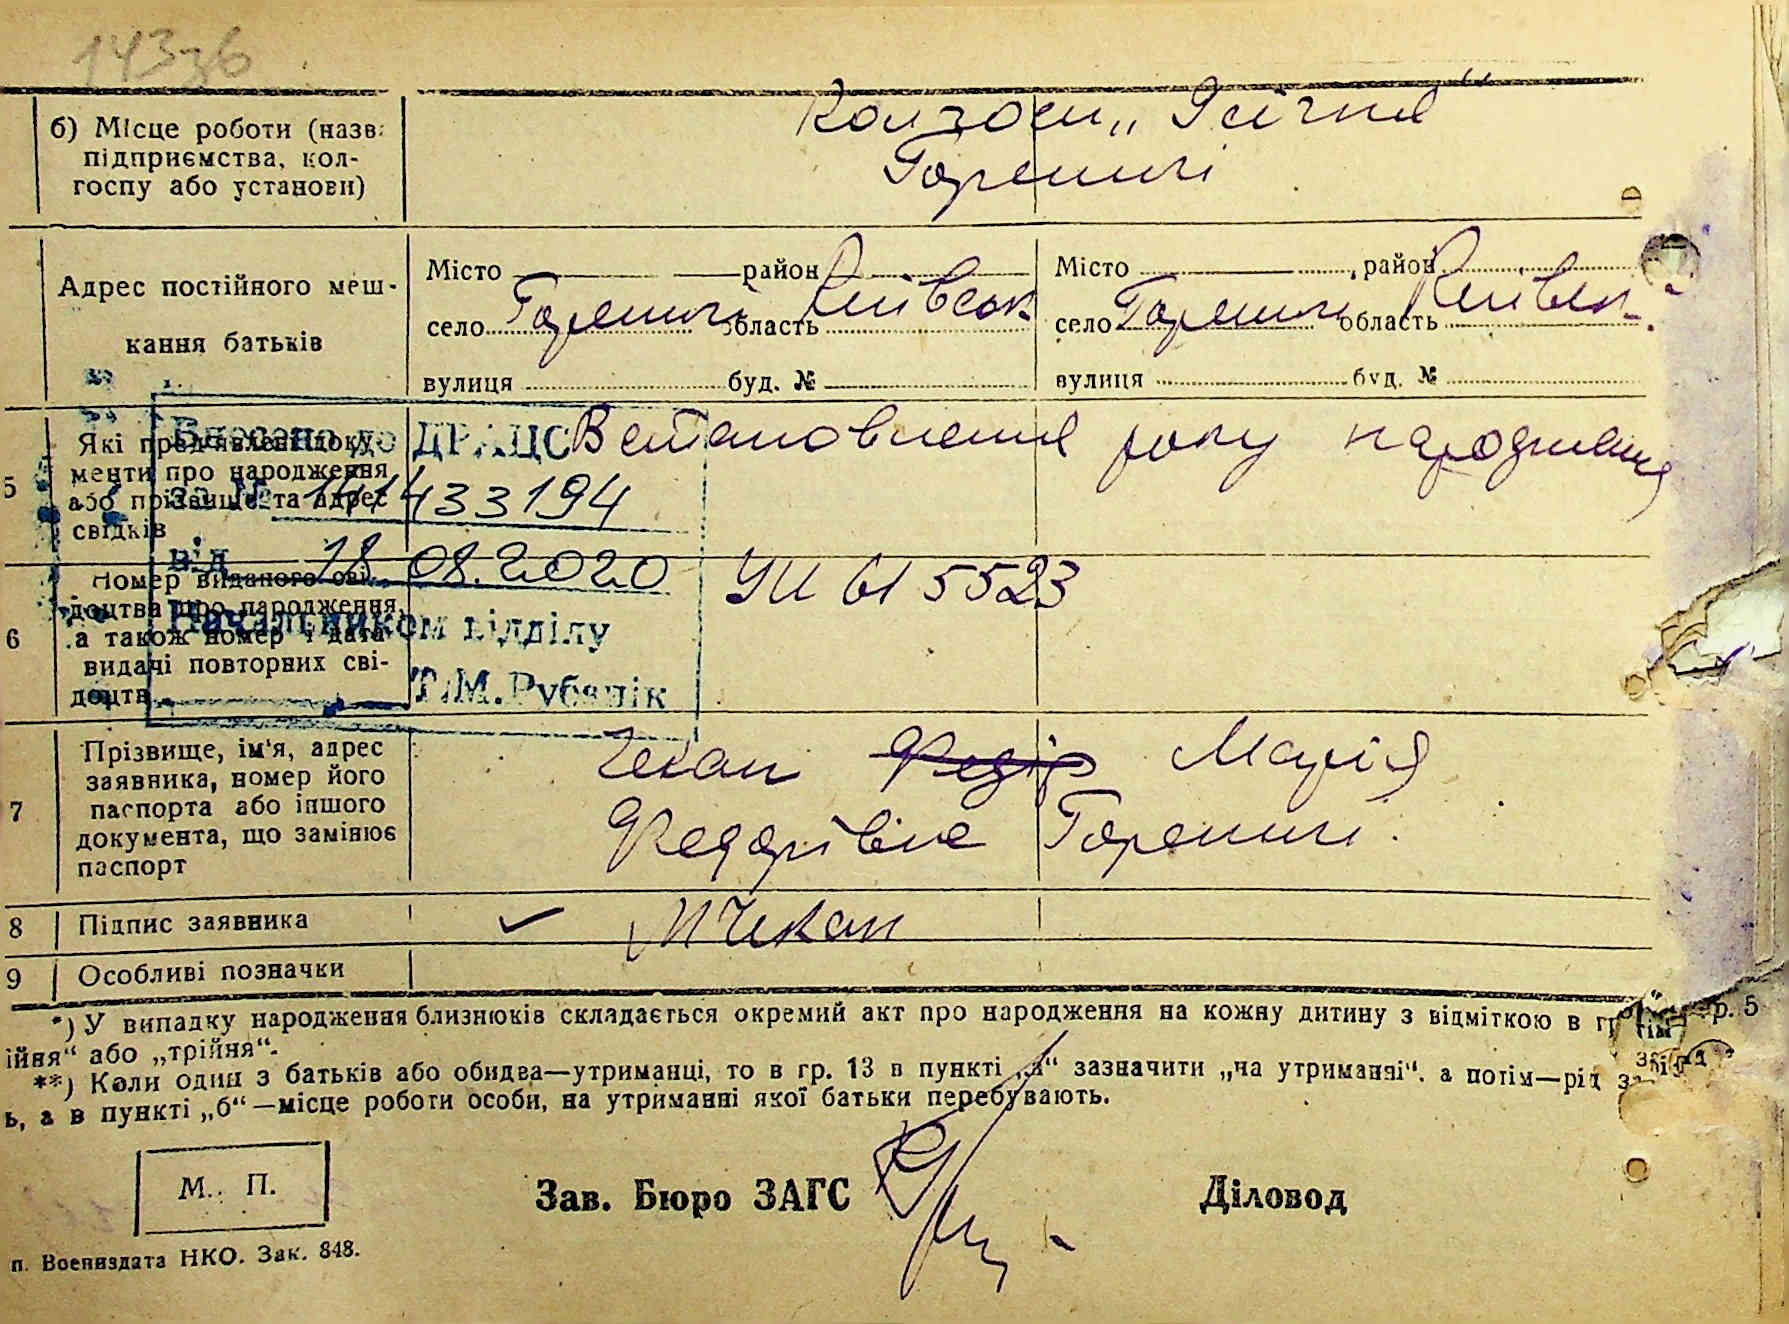 143зв
б) Місце роботи (назв.
підприємства, кол-
госпу або установи)
Колгосп „9 січня“
Гореничі
Адрес постійного меш-
кання батьків
Місто район Київськ
село Гореничі область
вулиця буд. №
Місто район Київськ.
село Гореничі область
вулиця буд. №
5
Які пред'явлені доку-
менти про народження
або прізвище та адрес
свідків
Встановлення року народження
до ДРАЦС
за № 14433194
від 18.08.2020
Начальником відділу
Т.М.
6
Номер виданого сві-
доцтва про народження,
а також номер і дата
видачі повторних сві-
доцтв
615523
7
Прізвище, ім'я, адрес
заявника, номер його
паспорта або іншого
документа, що замінює
паспорт
Чекан Федір Марія
Федорівна Гореничі.
8
Підпис заявника
МЧекан
9
Особливі позначки
*) У випадку народження близнюків складається окремий акт про народження на кожну дитину з відміткою в гр. 5
ійня“ або „трійня“.
**) Коли один з батьків або обидва—утриманці, то в гр. 13 в пункті „а“ зазначити „на утриманні“, а потім—рід
ь, а в пункті „б“—місце роботи особи, на утриманні якої батьки перебувають.
М. П.
Зав. Бюро ЗАГС
Діловод
п. Воениздата НКО. Зак. 848.